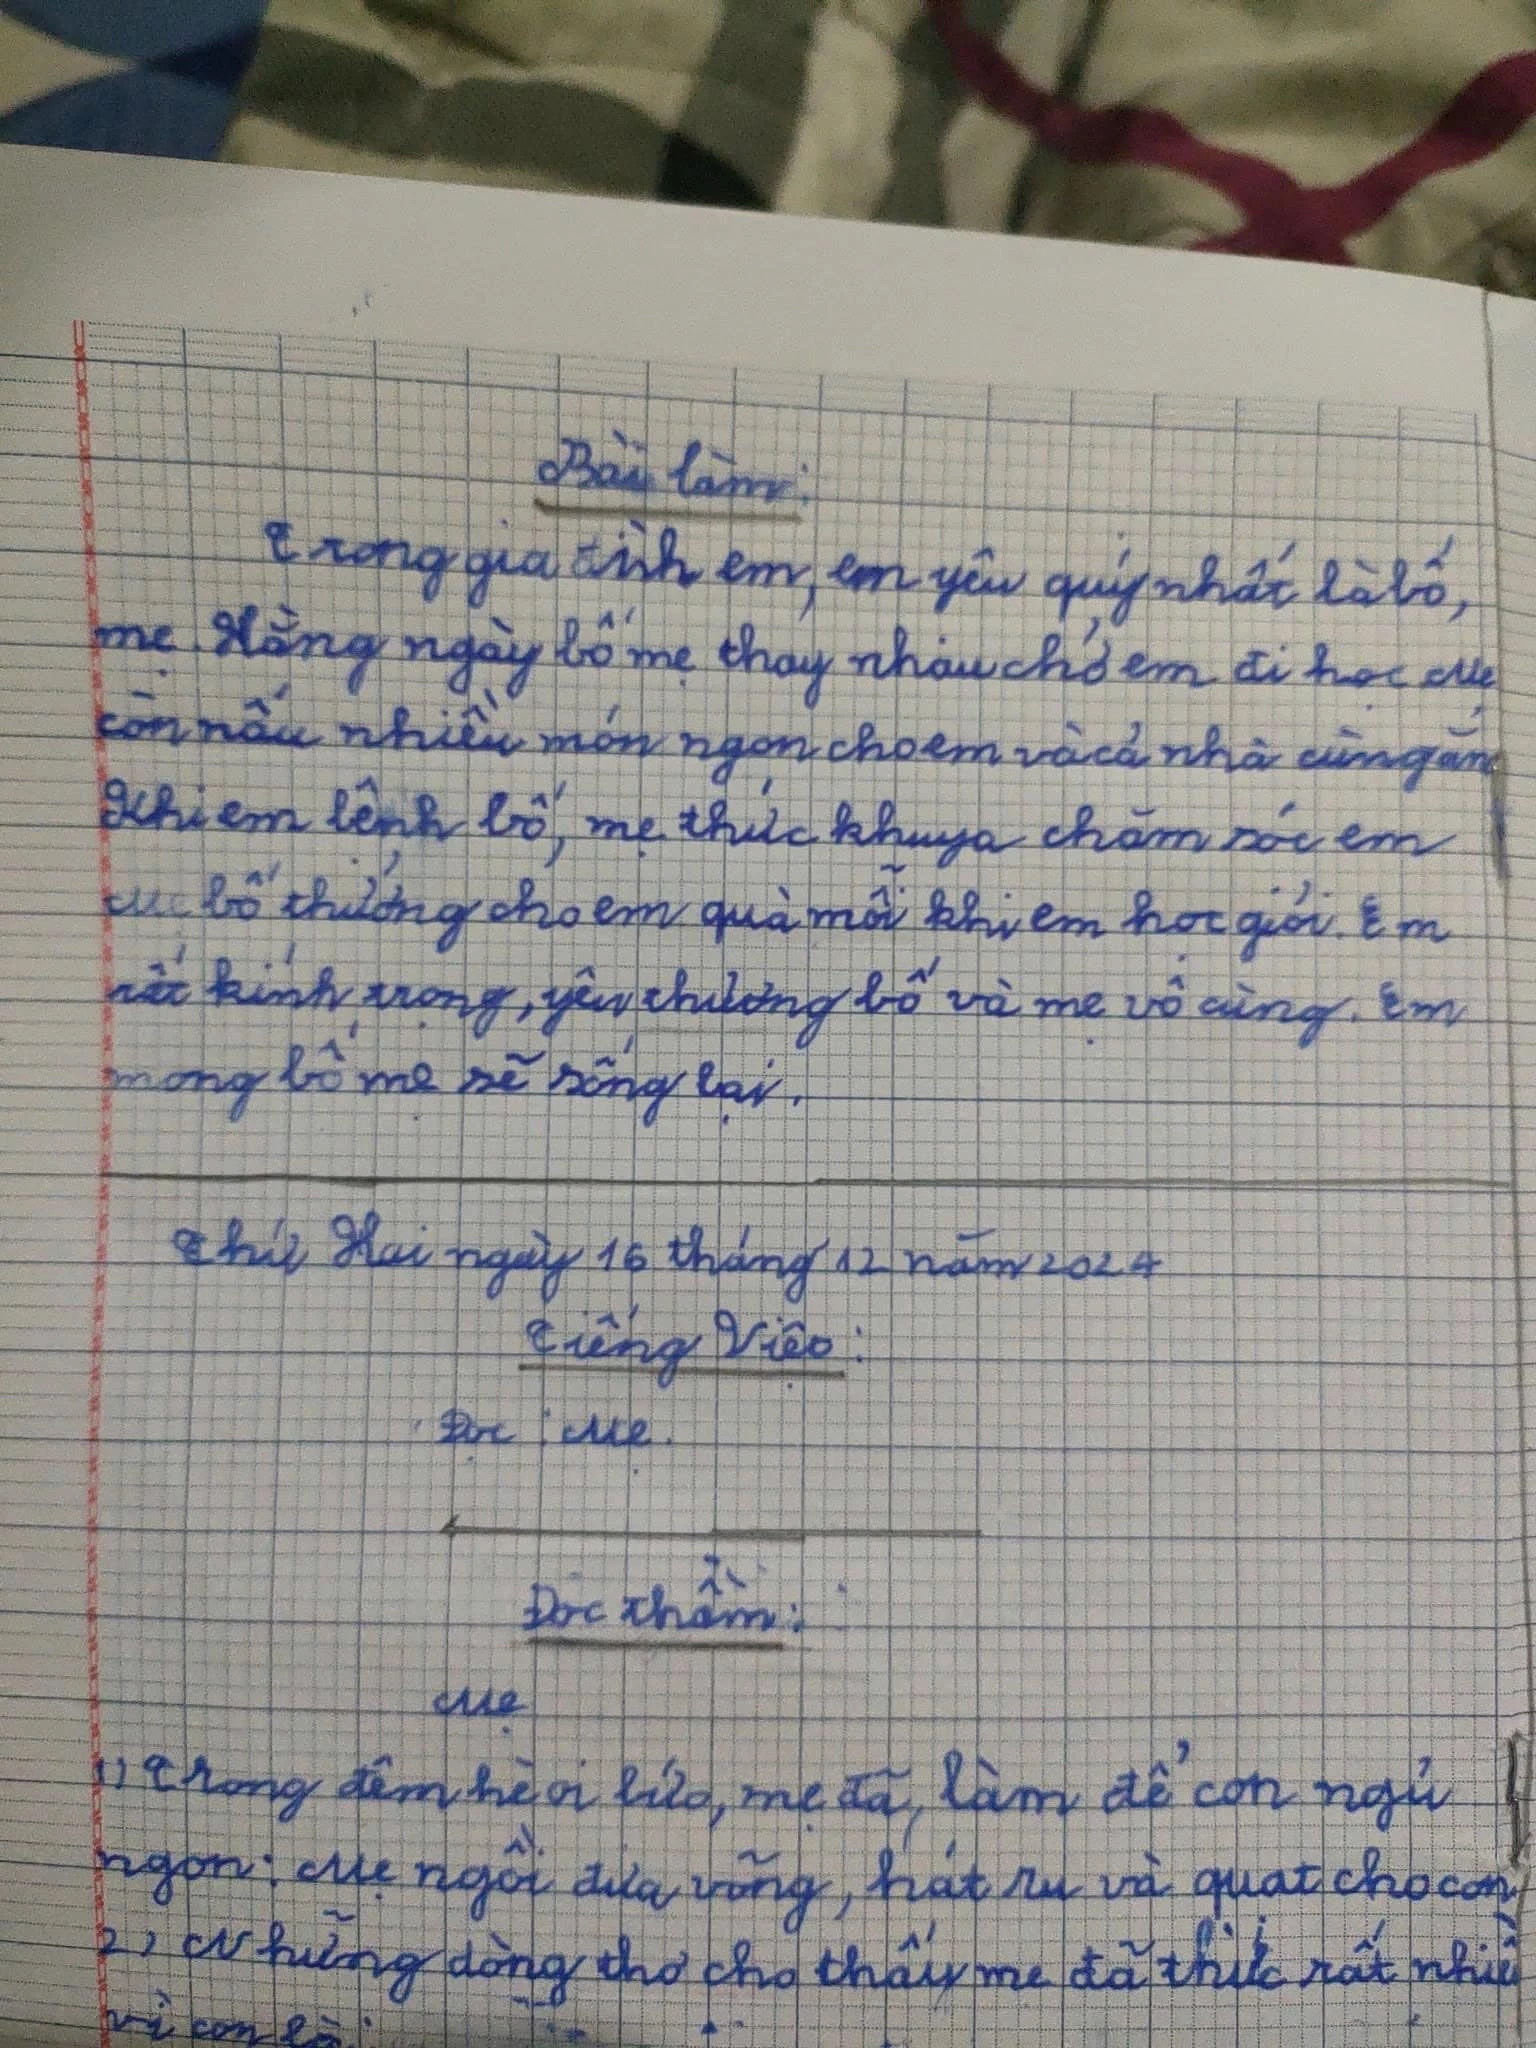 Bài làm:
Trong gia đình em, em yêu quý nhất là bố,
mẹ. Hằng ngày bố mẹ thay nhau chở em đi học Mẹ
còn nấu nhiều món ngon cho em và cả nhà cùng ăn
Khi em bệnh bố, mẹ thức khuya chăm sóc em
bố thưởng cho em quà mỗi khi em học giỏi. Em
rất kính trọng, yêu thương bố và mẹ vô cùng. Em
mong bố mẹ sẽ sống lại.
Thứ Hai ngày 16 tháng 12 năm 2024
Tiếng Việt:
Đọc : Mẹ.
Đọc thầm:
Mẹ
1) Trong đêm hè oi bức, mẹ đã, làm để con ngủ
ngon: Mẹ ngồi đưa võng, hát ru và quạt cho con
2) Những dòng thơ cho thấy mẹ đã thức rất nhiều
vì con là: